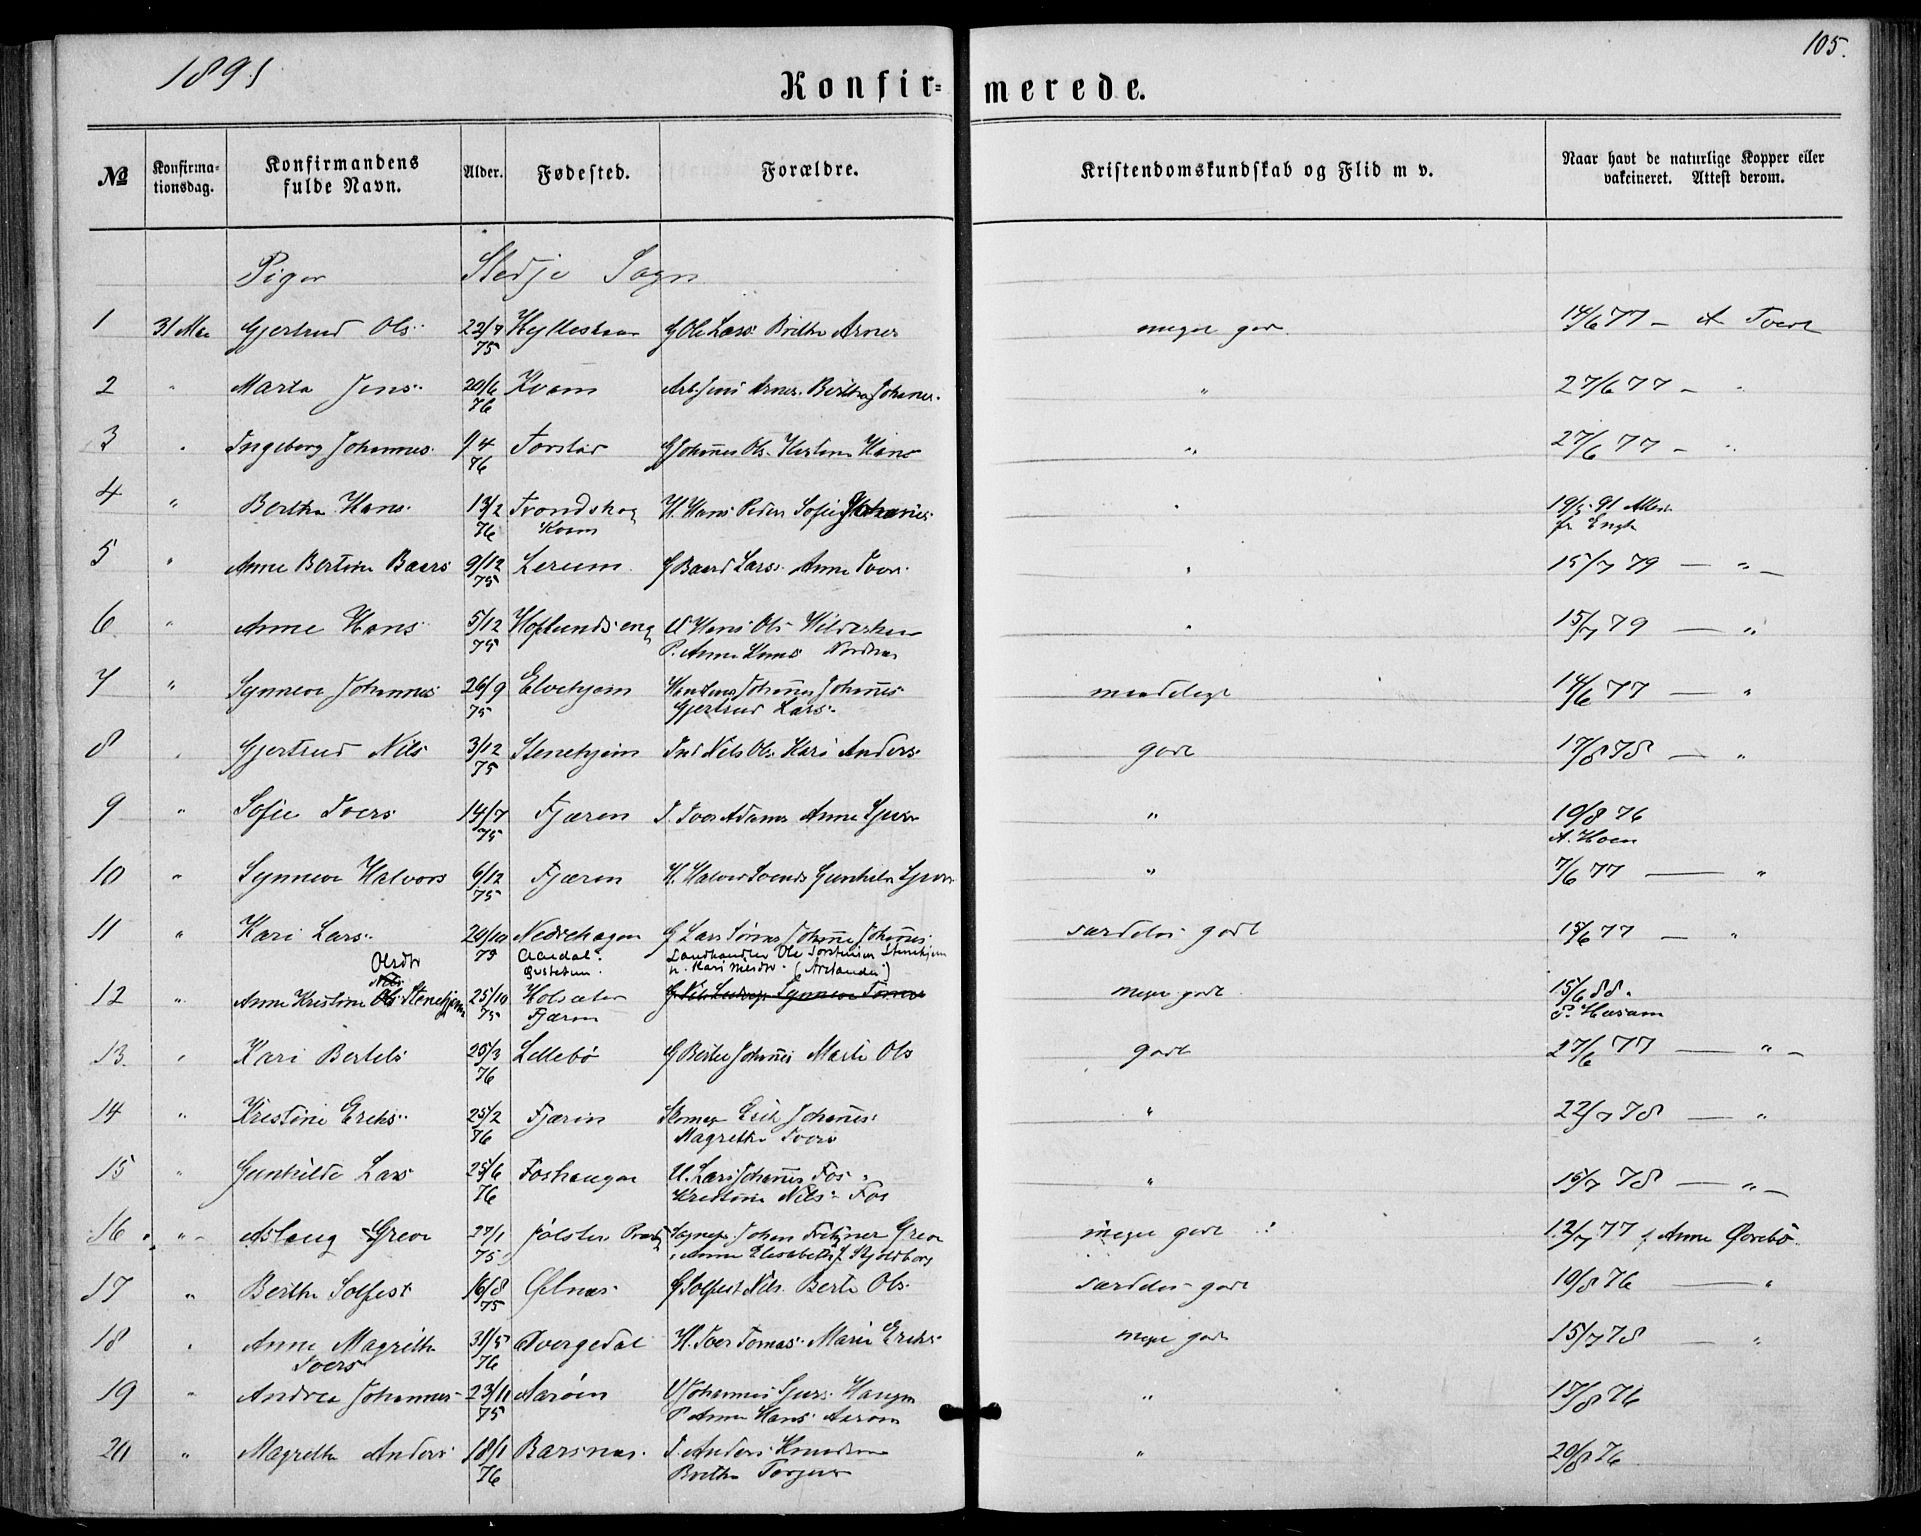 1891
105.
Konfir=merede.
№ Konfirma-tionsdag. Konfirmandens fulde Navn. Alder. Fødested. Forældre. Kristendomskundskab og Flid m v. Naar havt de naturlige Kopper eller vakcineret. Attest derom.
Piger Stedje Sogn
1 31 Mai Gjertrud Ols. 22/7 75 G Ole Lars. Brithe Arnes meget godt 14/6 77 –
2 " Marta Jens. 20/6 76 Kvam Arb. Jens Arnes. Brithe Johanes. " 27/6 77 – "
3 " Ingeborg Johannes. 1/4 76 G Johanes Ols. Kristine Hans " 27/6 77 – "
4 " Berthe Hans. 13/2 76 Trondskog Kvam H. Hans Peders Sofie Johanes. " 19/5 91 Attest fr Engh
5 " Anne Bertine Baars 9/12 75 Lerum. G Baard Lars. Anne Ivers. " 15/7 79 — " –
6 " Anne Hans 5/12 75 Hoflundseng U Hans Ols P. Anne Hans " 15/7 79 — "
7 " Synneve Johannes 26/9 75 Elvehjem Johanes Johanes. Gjertrud Lars. maadeligt 14/6 77 — "
8 " Gjertrud Nils 3/12 75 Stenehjem Ind Nils Ols. Kari Anders. godt 17/8 78 — "
9 " Sofie Ivers 14/7 75 Fjæren I. Iver Adams Anne Sjurs " 19/8 76 A. Hoen
10 " Synneve Halvors 6/12 75 Fjæren H. Halvor Svends Gunhild Sjurs " 7/6 77 — "
11 " Kari Lars. 20/10 75 Nedrehagen G Lars Johanes. særdeles godt 15/6 77 — "
Aardal. Landhandler Ole Torstensen Stenehjem
Olsdtr h. Kari (Aarland)
12 " Anne Kristine Stenehjem 25/10 75 Holsæter Fjæren Synneve meget godt 15/6 88. P. Husum
13 " Kari Bertels 25/3 76 Lillebø G Bertel Johanes Marte Ols godt 27/6 77 — " –
14 " Kristine Eriks. 25/2 76 Fjæren Skomager Erik Johanes. Magrethe Ivers " 22/7 78 — "
15 " Gunhilde Lars 25/6 76 Foshaugen U. Lars Johanes Fos Kristine Nils. Fos " 15/7 78 — " –
16 " Aslaug Greve 27/1 75 Jølster Sogneprest Johan Fritzner Greve Anne Elisabeth f. meget godt 12/7 77 f Anne Øvrebø
17 " Berthe Solfest 16/8 75 Ølnæs G Solfest Nils. Berte Ols. særdeles godt 19/8 76 — "
18 " Anne Magrethe Ivers 31/5 76 Dvergedal H. Iver Tomas. Marie Eriks. meget godt 15/7 78 — "
19 " Andrea Johannes 23/11 75 Aarøen U Johannes Sjurs. Haugen P Anne Hans. Aarøen " 17/8 76
20 " Magrethe Anders 18/1 76 Barsnes. I. Anders Knudsen Brithe Torgers " 20/8 76